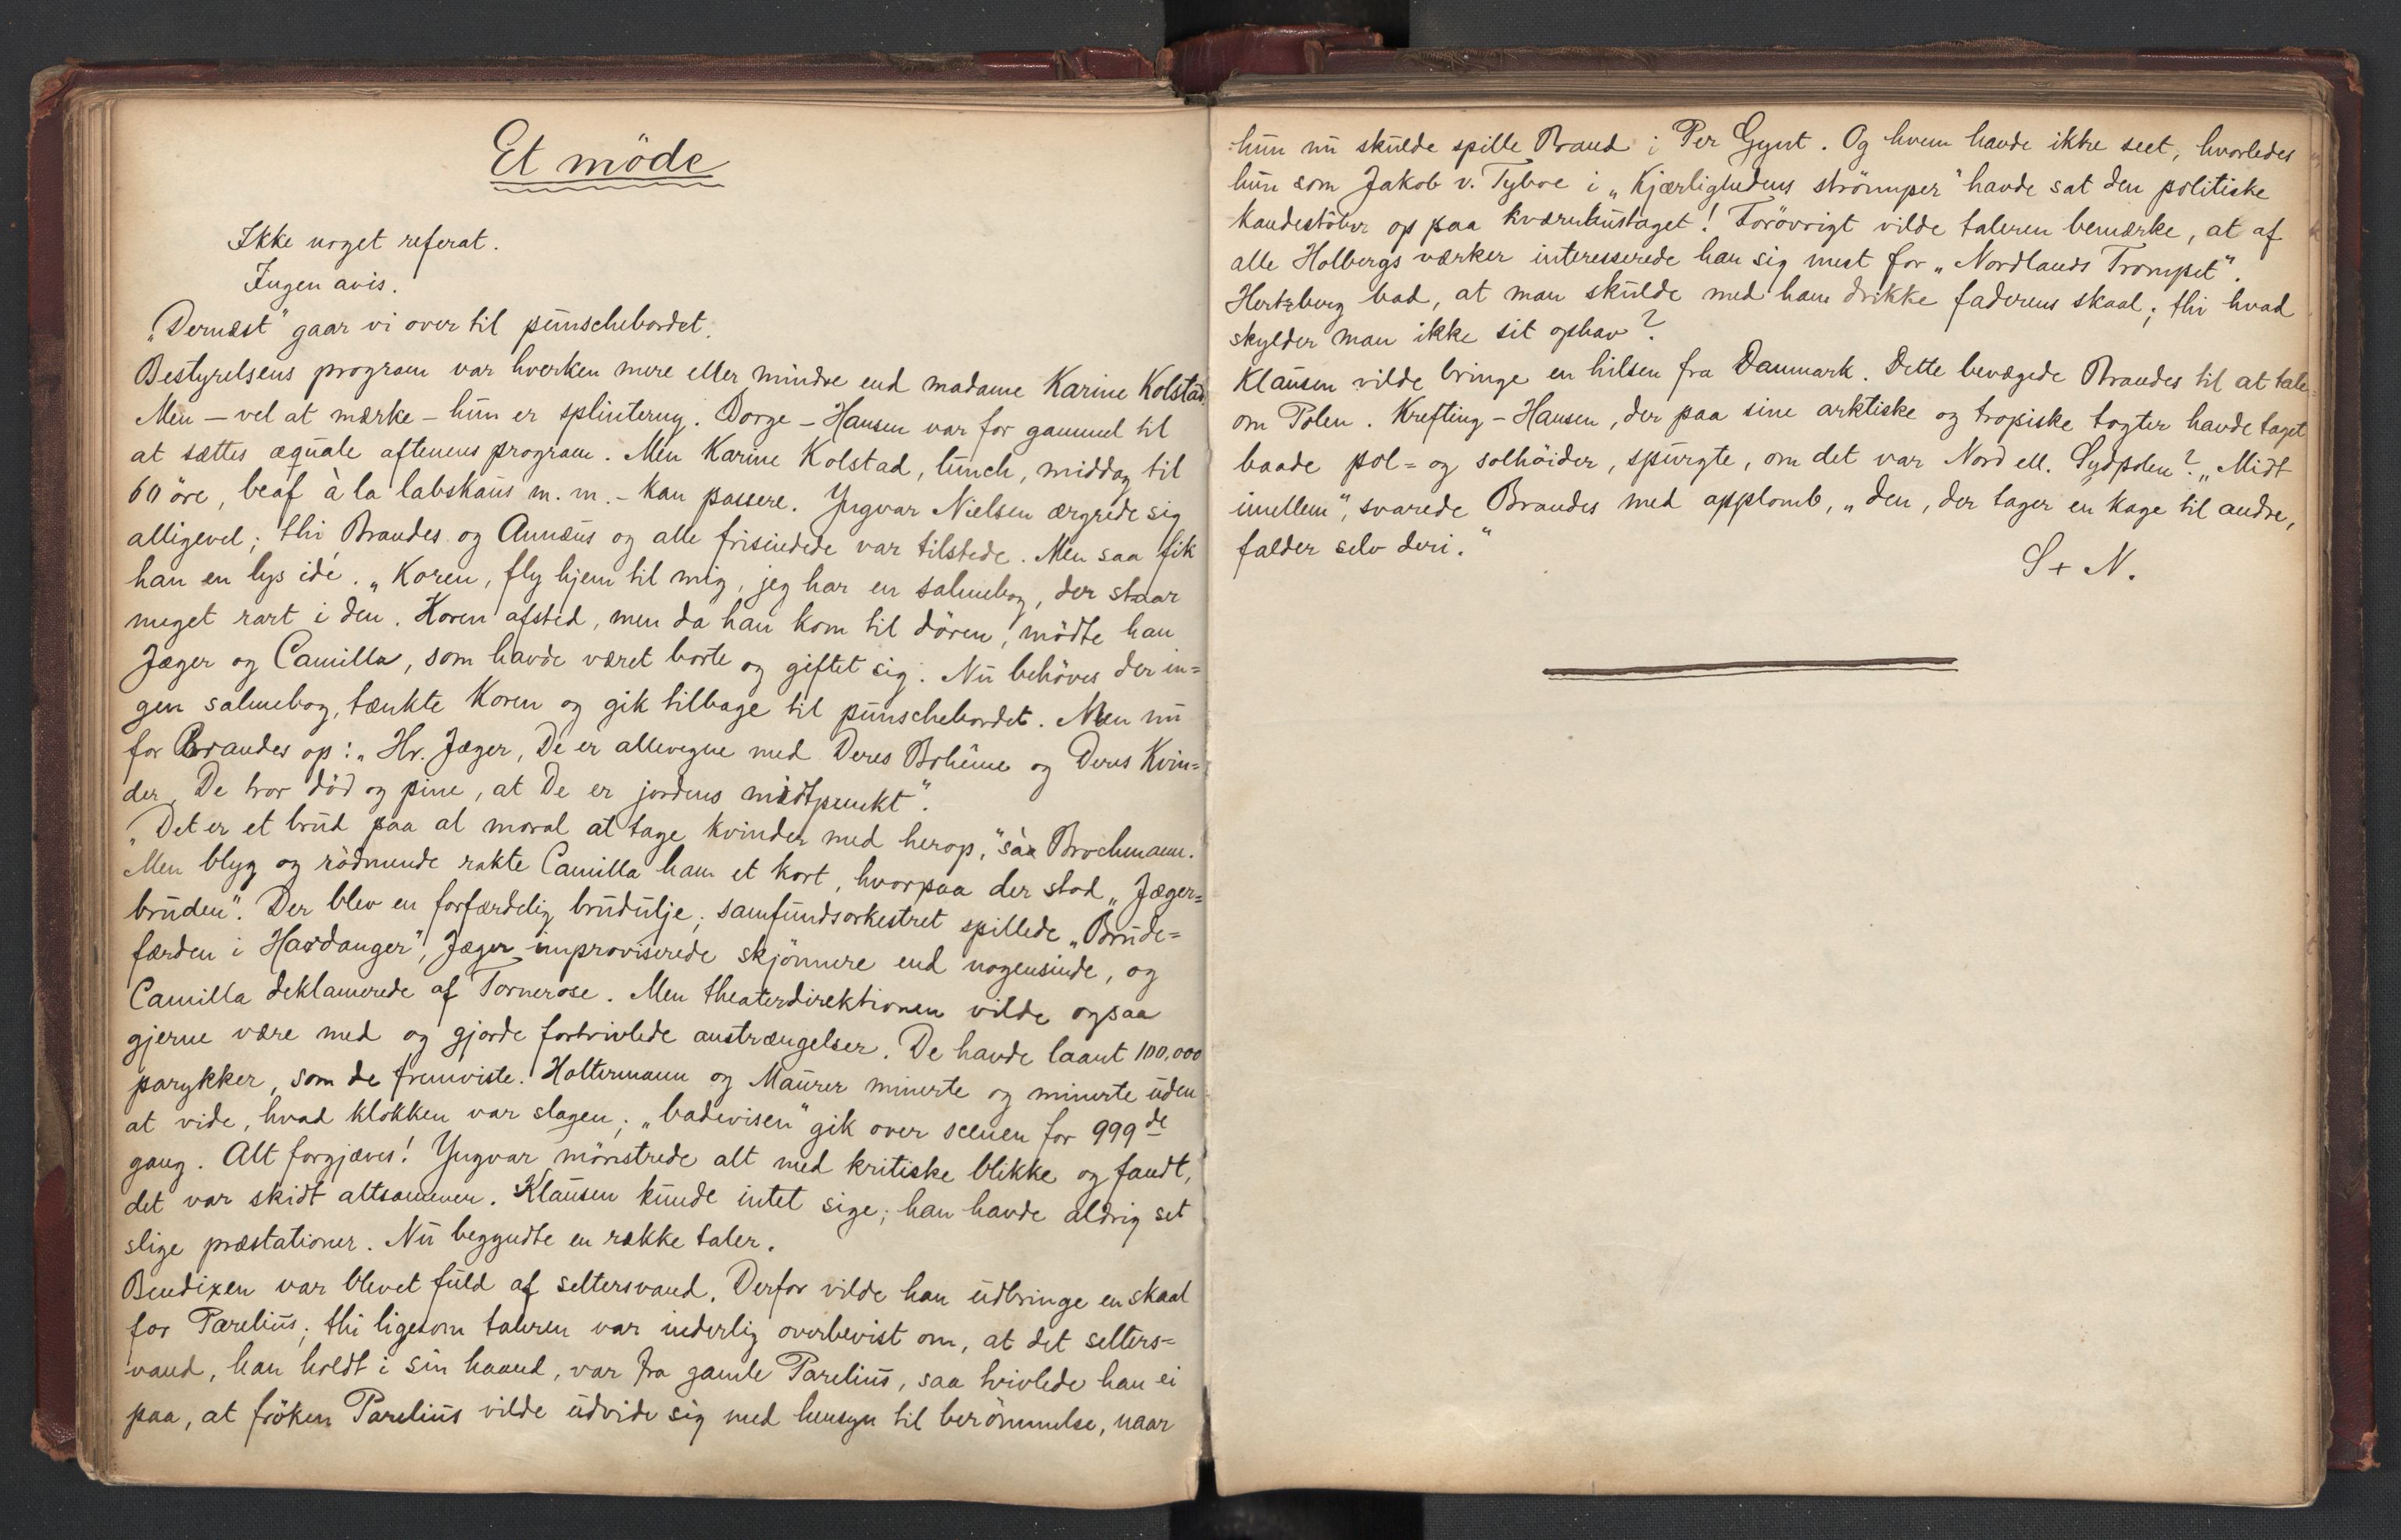 Et möde
Ikke noget referat.
Ingen avis.
„Dernæst" gaar vi over til punschebordet.
Bestyrelsens program var hverken mere eller mindre end madame Karine Kolstad.
Men – vel at mærke – hun er splinterny. Dorge-Hansen var for gammel til
at sættes æquale aftenens program. Men Karine Kolstad, lunch, middag til
60 öre, beaf à la labskaus m.m. – kan passere. Yngvar Nielsen ærgrede sig
alligevel; thi Brandes og Annæus og alle frisindede var tilstede. Men saa fik
han en lys idé. „Koren, fly hjem til mig, jeg har en salmebog, der staar
meget rart i den. Koren afsted, men da han kom til dören, mödte han
Jæger og Camilla, som havde været borte og giftet sig. Nu behöves der in=
gen salmebog, tænkte Koren og gik tilbage til punschebordet. Men nu
for Brandes op: „Hr. Jæger, De er allevegne med Deres Bohême og Deres Kvin=
der, De tror död og pine, at De er jordens midtpunkt".
„Det er et brud paa al moral at tage kvinder med herop," sa Brochmann.
Men blyg og rödmende rakte Camilla ham et kort, hvorpaa der stod „Jæger=
bruden". Der blev en forfærdelig brudulje; samfundsorkestret spillede „Brude=
færden i Hardanger", Jæger improviserede skjönnere end nogensinde, og
Camilla deklamerede af Tornerose. Men theaterdirektionen vilde ogsaa
gjerne være med og gjorde fortvivlede anstrængelser. De havde laant 100,000
parykker, som de fremviste. Holtermann og Maurer minerte og minerte uden
at vide, hvad klokken var slagen; „badevisen" gik over scenen for 999de
gang. Alt forgjæves! Yngvar mönstrede alt med kritiske blikke og fandt,
det var skidt altsammen. Klausen kunde intet sige; han havde aldrig set
slige præstationer. Nu begyndte en række taler.
Bendixen var blevet fuld af seltersvand. Derfor vilde han udbringe en skaal
for Parelius; thi ligesom taleren var inderlig overbevist om, at det selters=
vand, han holdt i sin haand, var fra gamle Parelius, saa tvivlede han ei
paa, at fröken Parelius vilde udvide sig med hensyn til berömmelse, naar
hun nu skulde spille Brand i Per Gynt. Og hvem havde ikke seet, hvorledes
hun som Jakob v. Tyboe i „Kjærlighedens strömper" havde sat den politiske
kandestöber op paa kværnhustaget! Forövrigt vilde taleren bemærke, at af
alle Holbergs værker interesserede han sig mest for „Nordlands Trompet".
Hertzberg bad, at man skulde med ham drikke faderens skaal; thi hvad
skylder man ikke sit ophav?
Klausen vilde bringe en hilsen fra Danmark. Dette bevægede Brandes til at tale
om Polen. Krefting-Hansen, der paa sine arktiske og tropiske togter havde taget
baade pol= og solhöider, spurgte, om det var Nord ell. Sydpolen? „Midt
imellem", svarede Brandes med applomb, „den, der tager en kage til andre,
falder selv deri."
S + N.